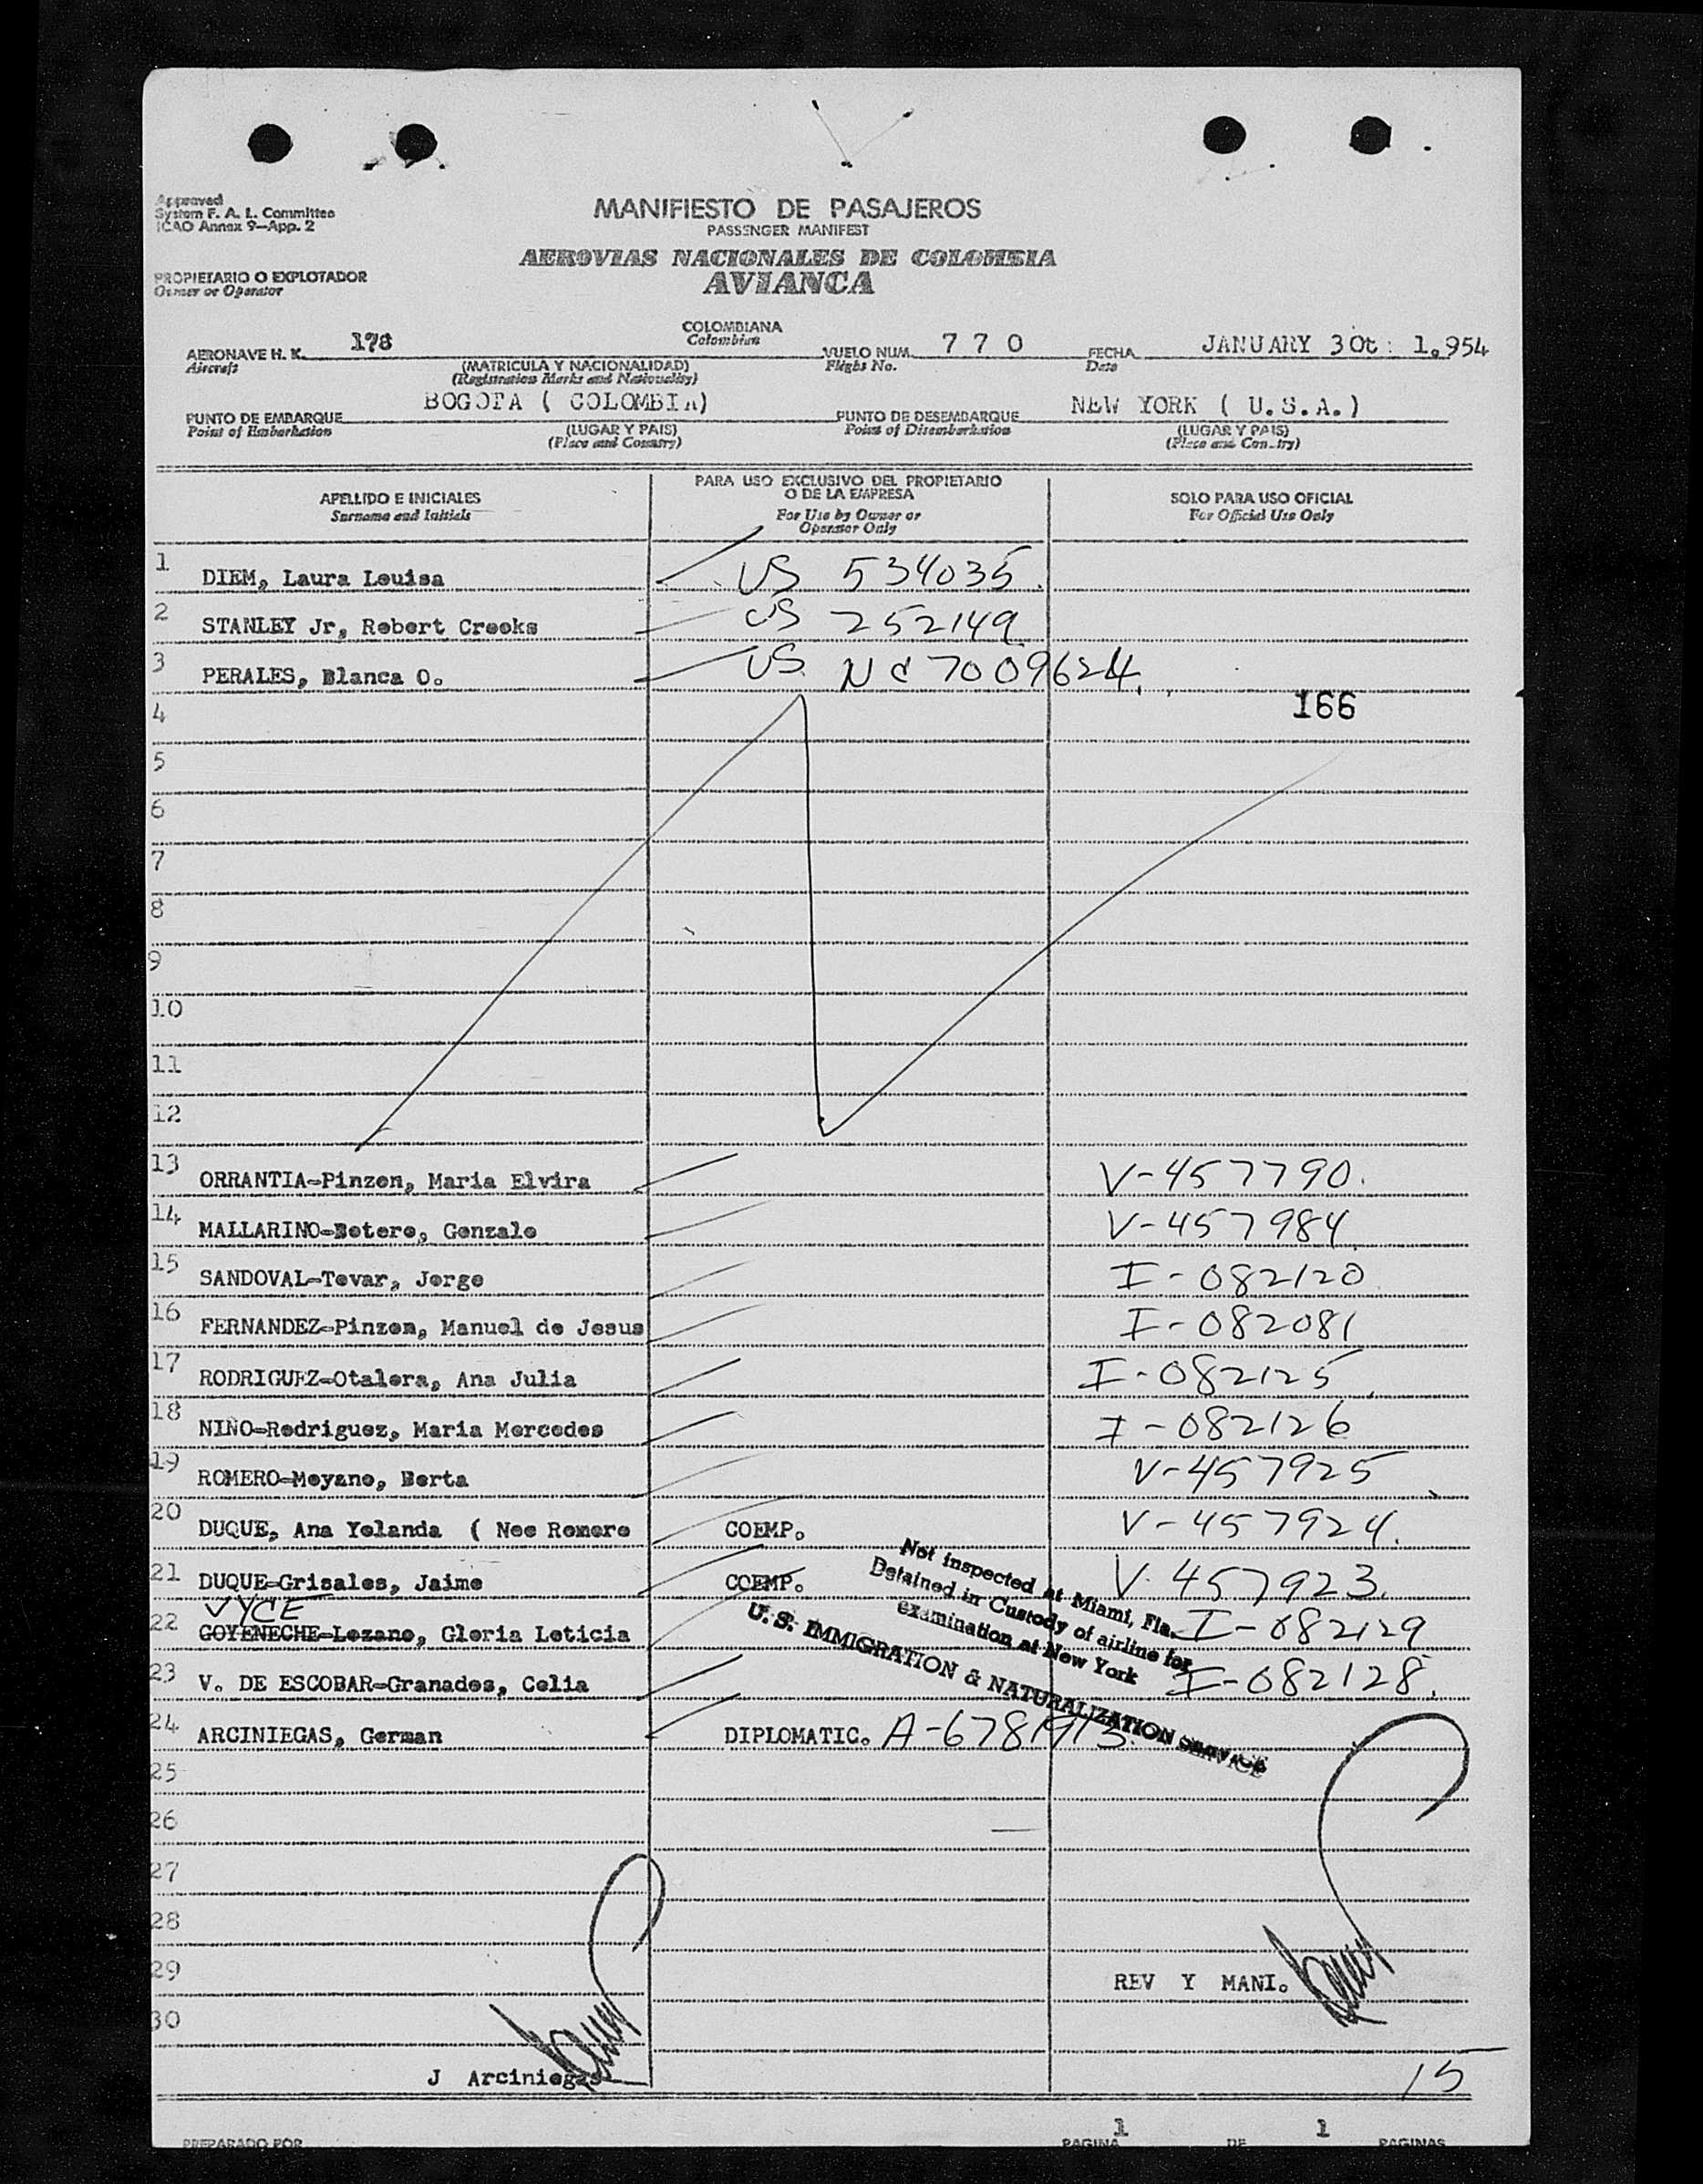 Approved
System F. A. L. Committee
ICAO Annex 9—App. 2
MANIFIESTO DE PASAJEROS
PASSENGER MANIFEST
AEROVIAS NACIONALES DE COLOMBIA
AVIANCA
PROPIETARIO O EXPLOTADOR
Owner or Operator
AERONAVE H. K. 178 COLOMBIANA VUELO NUM. 7 7 0 FECHA JANUARY 30t: 1.954
Aircraft Colombian Flight No. Date
(MATRICULA Y NACIONALIDAD)
(Registration Marks and Nationality)
PUNTO DE EMBARQUE BOGOTA ( COLOMBIA) PUNTO DE DESEMBARQUE NEW YORK ( U.S.A.)
Point of Embarkation (LUGAR Y PAIS) Point of Disembarkation (LUGAR Y PAIS)
(Place and Country) (Place and Country)
APELLIDO E INICIALES
Surname and Initials
PARA USO EXCLUSIVO DEL PROPIETARIO
O DE LA EMPRESA
For Use by Owner or
Operator Only
SOLO PARA USO OFICIAL
For Official Use Only
1 DIEM, Laura Louisa US 534035.
2 STANLEY Jr, Robert Crooks US 252149
3 PERALES, Blanca O. US. N C 7009624.
4 166
5
6
7
8
9
10
11
12
13 ORRANTIA-Pinzon, Maria Elvira V-457790.
14 MALLARINO-Botero, Gonzalo V-457984
15 SANDOVAL-Tovar, Jorge I-082120
16 FERNANDEZ-Pinzon, Manuel de Jesus I-082081
17 RODRIGUEZ-Otalora, Ana Julia I-082125
18 NIÑO-Rodriguez, Maria Mercedes I-082126
19 ROMERO-Moyano, Berta V-457925
20 DUQUE, Ana Yolanda ( Nee Romero COEMP. V-457924.
21 DUQUE-Grisales, Jaime COEMP. V-457923.
VYCE
22 GOYENECHE-Lozano, Gloria Leticia I-082129
23 V. DE ESCOBAR-Granados, Celia I-082128.
24 ARCINIEGAS, German DIPLOMATIC. A-6781913
Not inspected at Miami, Fla.
Detained in Custody of airline for
examination at New York
U. S. IMMIGRATION & NATURALIZATION SERVICE
25
26
27
28
29 REV Y MANI.
30
J Arciniegas
15
PREPARADO POR PAGINA 1 DE 1 PAGINAS